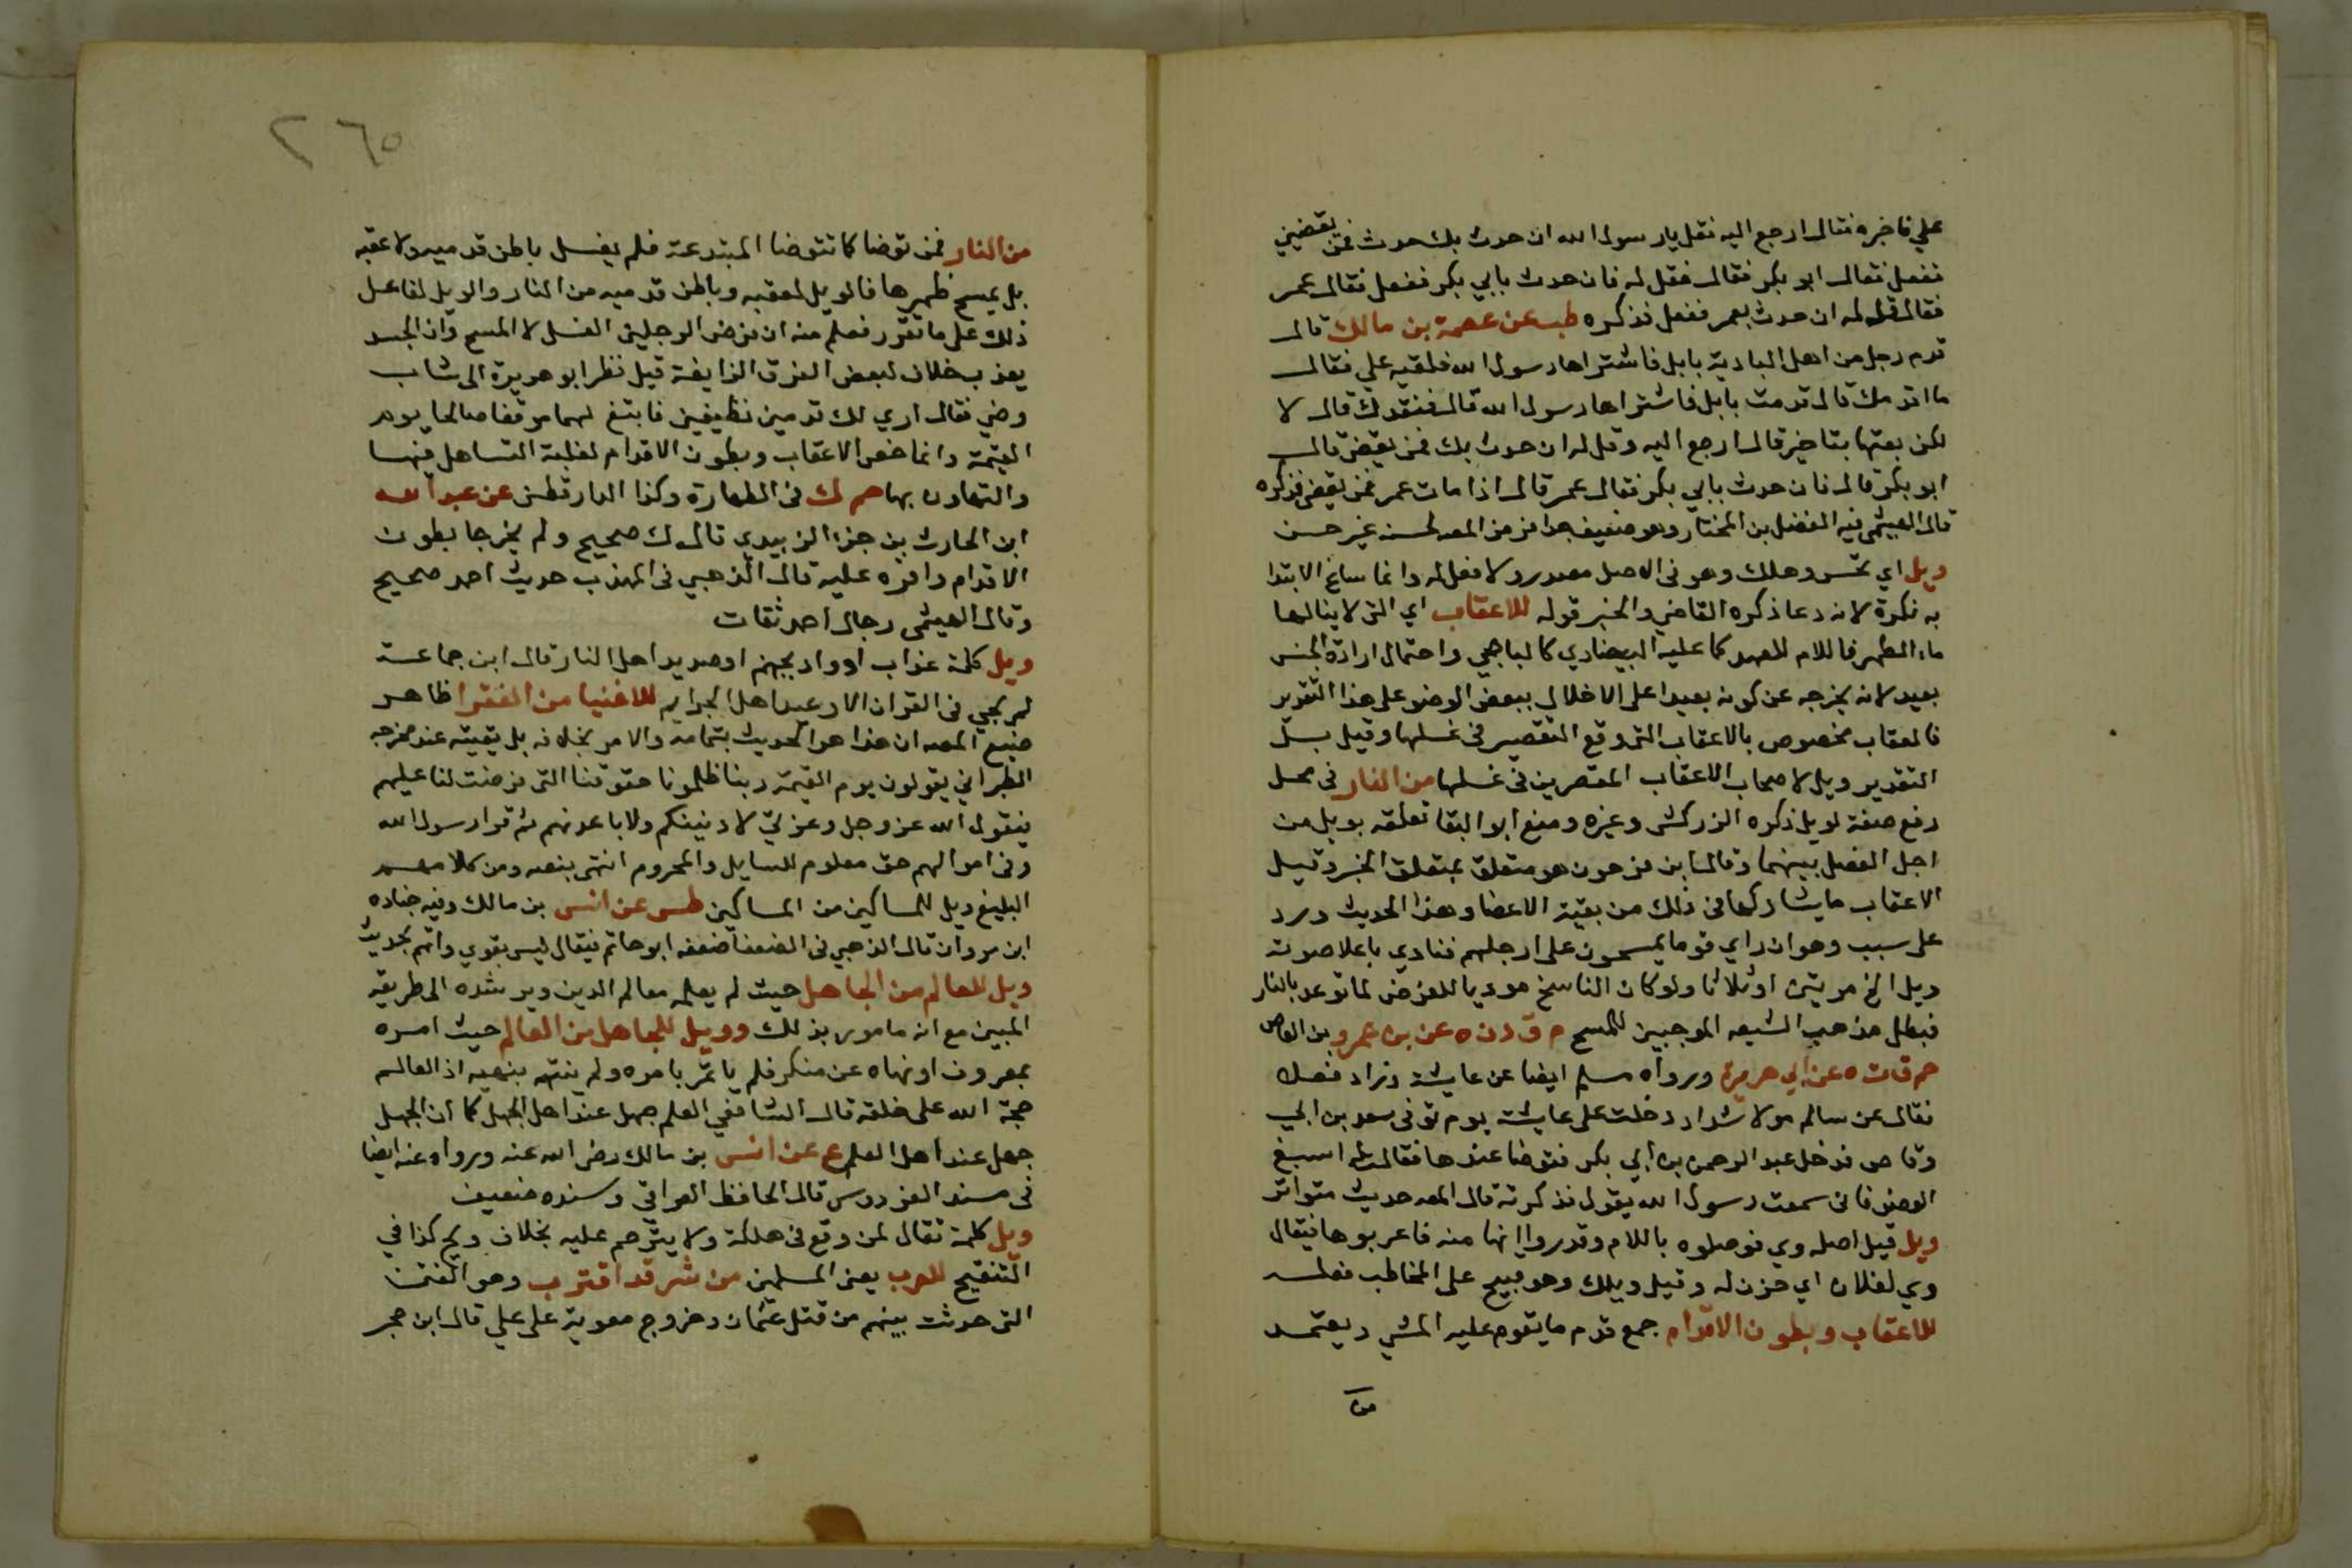 علي فاخبره فقال ارجع اليه فقل يا رسول الله ان حدث بك حدث فمن يقضيني
ففعل فقال ابو بكر فقال فقل له فان حدث بابي بكر ففعل فقال عمر
فقال قل له ان حدث بعمر ففعل فذكره طب عن عصمة بن مالك قال
قدم رجل من اهل البادية بابل فاشتراها رسول الله فلقيه علي فقال
ما اقدمك قال قدمت بابل فاشتراها رسول الله قال فنقدك قال لا
لكن بعتها بتاخير قال ارجع اليه وقل له ان حدث بك فمن يقضي قال
ابو بكر قال فان حدث بابي بكر فقال عمر قال اذا مات عمر فمن يقضي فذكره
قال الهيثمي فيه الفضل بن المختار وهو ضعيف جدا فرمز المصـ لحسنه غير حسن
ويل اي تحسر وهلك وهو في الاصل مصدر ولا فعل له وانما ساغ الابتدا
به نكرة لانه دعا ذكره القاضي والخبر قوله للاعقاب اي التي لا ينالها
ماء الطهر فاللام للعهد كما عليه البيضاوي كالباجي واحتمال ارادة الجنس
بعيد لانه يخرجه عن كونه بعيدا على الاخلال ببعض الوضو على هذا التقدير
فالعقاب مخصوص بالاعقاب التي وقع التقصير في غسلها وقيل بل
التقدير ويل لاصحاب الاعقاب المقصرين في غسلها من النار في محل
رفع صفة لويل ذكره الزركشي وغيره ومنع ابو البقا تعلقه بويل من
اجل الفصل بينهما وقال ابن فرحون هو متعلق بمتعلق الخبر وقيل
الاعقاب ما يشاركها في ذلك من بقية الاعضا وهذا الحديث ورد
على سبب وهو ان راي قوما يمسحون على ارجلهم فنادي باعلا صوته
ويل الخ مرتين او ثلاثا ولو كان الناسخ موديا للفرض لما توعد بالنار
فبطل مذهب الشيعه الموجبين للمسح م ق د ن ه عن بن عمرو بن العاص
حم ق ت ه عن ابي هريرة ورواه مسلم ايضا عن عايشة وزاد فصل
فقال عن سالم مولا شداد دخلت على عايشة يوم توفى سعد بن ابي
وقاص فدخل عبد الرحمن بن ابي بكر فتوضا عندها فقالت له اسبغ
الوضو فاني سمعت رسول الله يقول فذكرته قال المصـ حديث متواتر
ويل قيل اصله وي فوصلوه باللام وقدروا انها منه فاعربوها فيقال
وي لفلان اي حزن له وقيل ويلك وهو قبيح على المخاطب فعله
للاعقاب وبطون الاقدام جمع قدم ما يقوم عليه المشي ويعتمد
من
٢٦٥
من النار فمن توضا كما تتوضا المبتدعة فلم يغسل باطن قدميه ولا عقبه
بل يمسح ظهرها فالويل لعقبه وباطن قدميه من النار والويل لفاعل
ذلك على ما تقرر فعلم منه ان فرض الرجلين الغسل لا المسح وان الجسد
يعذب خلاف لبعض الفرق الزايغة قيل نظر ابو هريرة الى شاب
وضي فقال اري لك قدمين نظيفين فابتغ لهما موقفا صالحا يوم
القيمة وانما خص الاعقاب وبطون الاقدام لغلبة التساهل فيها
والتهاون بها حم ك في الطهارة وكذا الدارقطني عن عبد الله
ابن الحارث بن جزء الزبيدي قال ك صحيح ولم يخرجا بطون
الاقدام واقره عليه قال الذهبي في المهذب حديث احمد صحيح
وقال الهيثمي رجال احمد ثقات
ويل كلمة عذاب او واد بجهنم او صديد اهل النار قال ابن جماعة
لم يجي في القران الا وعيد اهل الجرايم للاغنيا من الفقرا ظاهر
صنيع المصـ ان هذا هو الحديث بتمامه والامر بخلافه بل بقيته عند مخرجه
الطبراني يقولون يوم القيمة ربنا ظلمونا حقوقنا التي فرضت لنا عليهم
فيقول الله عز وجل وعزتي لادنينكم ولاباعدنهم ثم قرا رسول الله
وفى اموالهم حق معلوم للسايل والمحروم انتهى بنصه ومن كلامهم
البليغ ويل للمساكين من المساكين طس عن انس بن مالك وفيه جناده
ابن مروان قال الذهبي في الضعفا ضعفه ابو حاتم فيقال ليس بقوي واتهم بحديث
ويل للعالم من الجاهل حيث لم يعلمه معالم الدين ويرشده الى طريقه
المبين مع انه مامور بذلك وويل للجاهل من العالم حيث امره
بمعروف او نهاه عن منكر فلم ياتمر بامره ولم ينته بنهيه اذ العالم
حجة الله على خلقه قال الشافعي العلم جهل عند اهل الجهل كما ان الجهل
جهل عند اهل العلم ع عن انس بن مالك رضى الله عنه ورواه عنه ايضا
فى مسند الفردوس قال الحافظ العراقي وسنده ضعيف
ويل كلمة تقال لمن وقع فى هلكة ولا يترحم عليه بخلاف ويح كذا في
التنقيح للعرب يعني المسلمين من شر قد اقترب وهو الفتن
التي حدثت بينهم من قتل عثمان وخروج معوية على علي قال ابن حجر